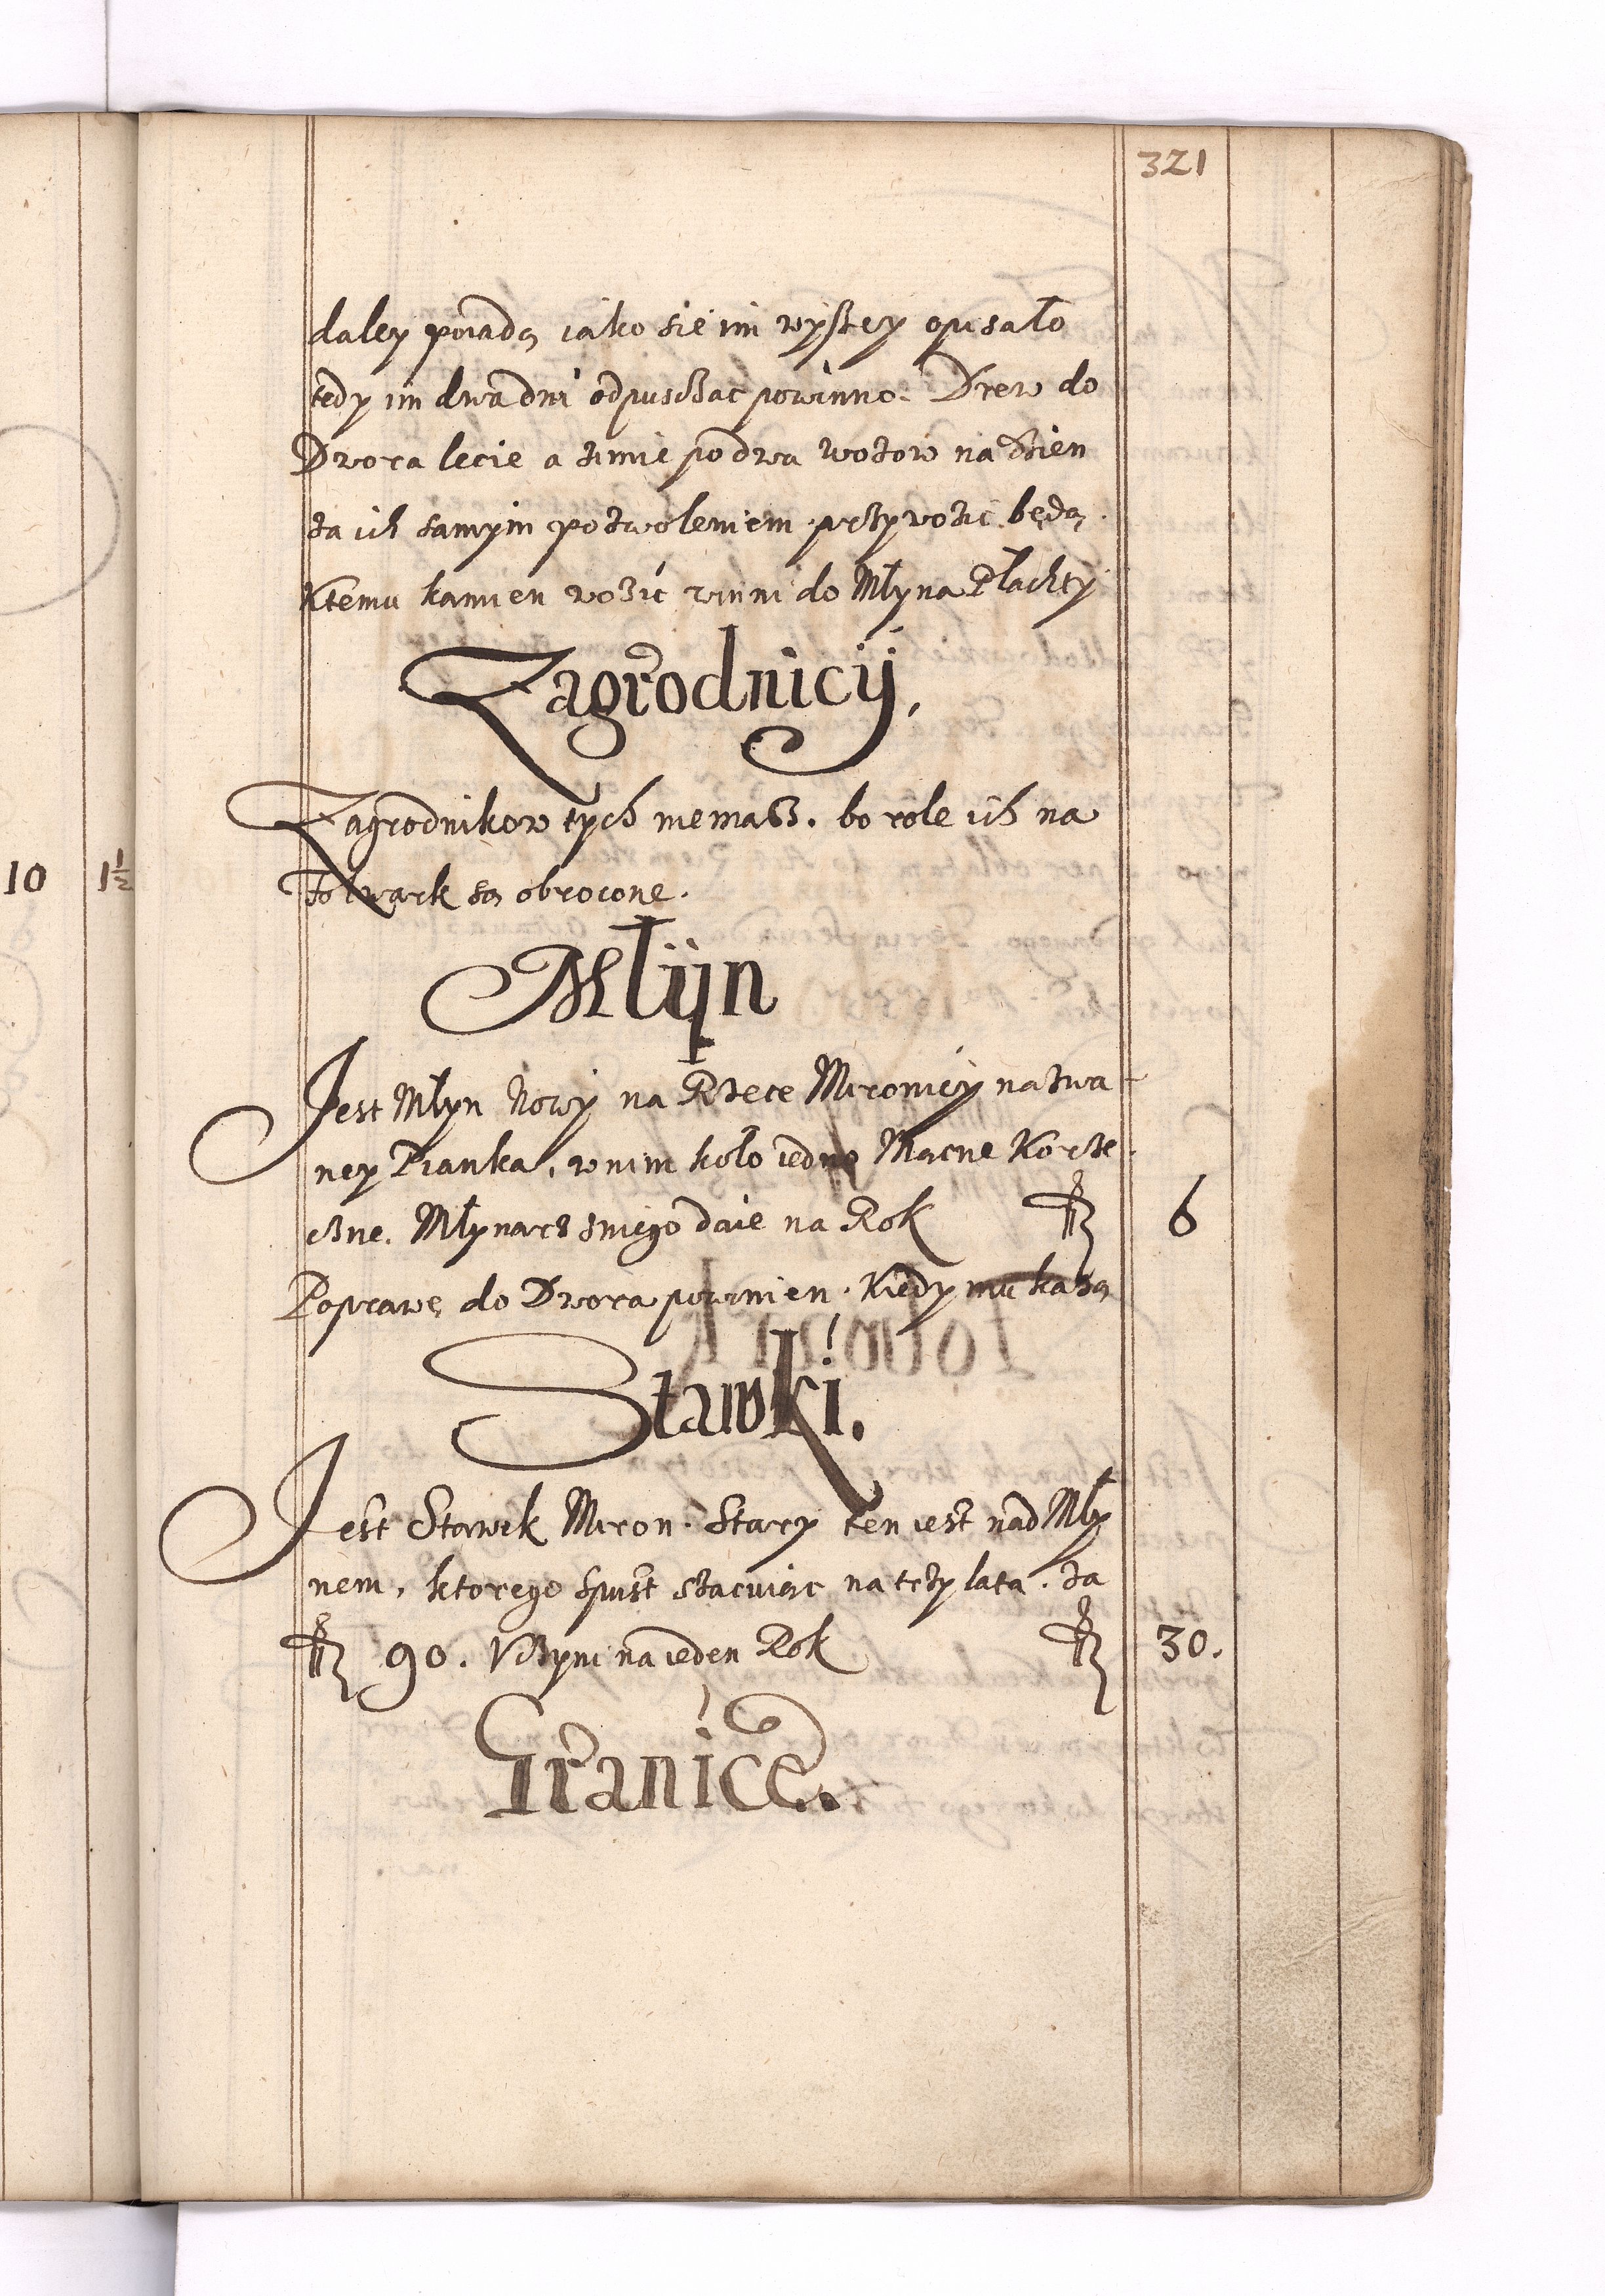 321
daley poiadą iako sie im wyßey opisało
tedy im dwa dni odpusczac powinno. Drew do
Dwora lecie a zimie po dwa wozow na dzien
za ich samym pozwoleniem przywozic będą.
Ktemu kamien wozić winni do Młyna Płachty
Zagrodnicÿ,
Zagrodnikow tych niemasz. bo role ich na
Folwark są obrocone.
Młÿn
Jest Młyn Nowy na Rzece Mironicy nazwa
ney Pianka, w nim koło iedno Macne Korze
czne. Młynarz zniego daie na Rok fl 6
Poprawę do Dwora powinien. Kiedy mu każą
Stawki.
Jest Stawek Miron. Stary ten iest nad Mły
nem, ktorego spust szacuiąc na trzy lata. za
fl 90. Vczyni na ieden Rok fl 30.
Granice.
10 1½